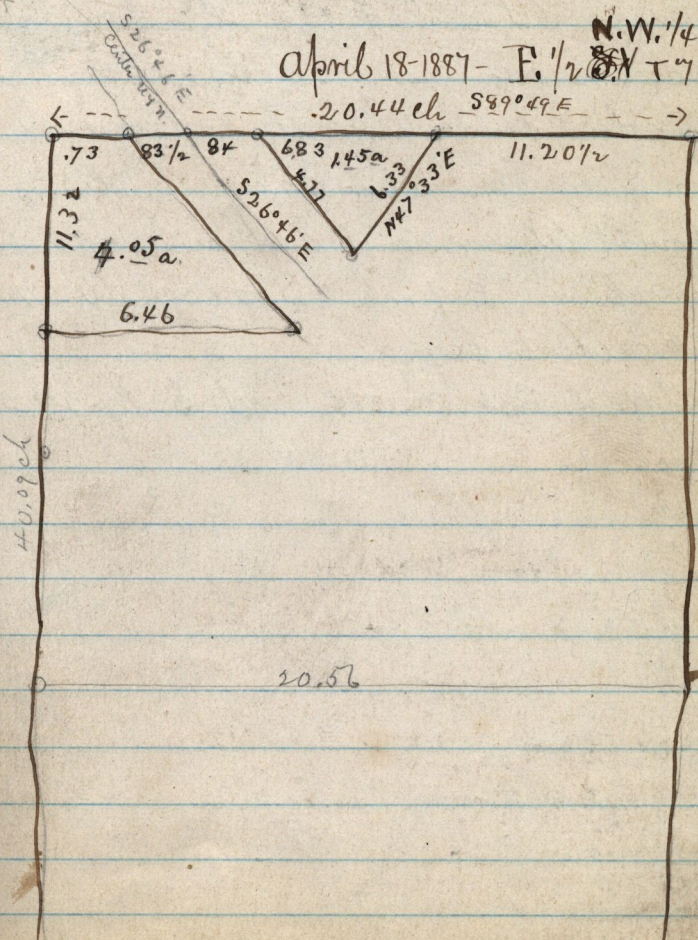 N.W. 1/4
April 18-1887- E. 1/2 T 7
S 26°46'E
Center Ry.
20.44 ch S 89°49 E
.73 83 1/2 84 6.83 1.45a 11.20 1/2
4.77
6.33
N 47°33'E
S 26°46'E
11.32
4.05a
6.46
40.09 ch
20.56